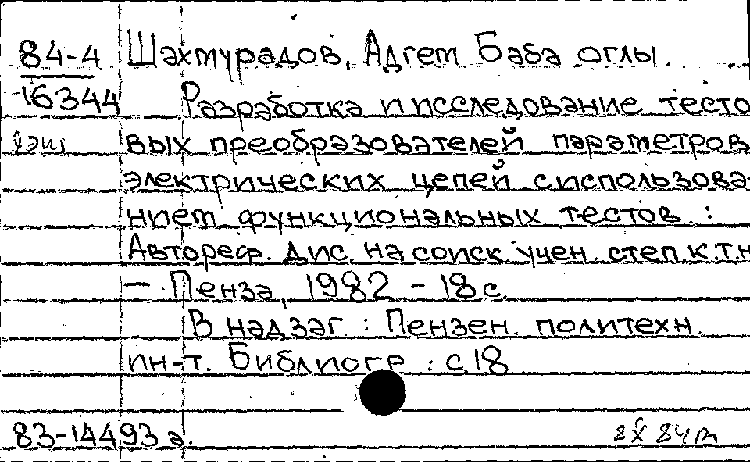 84-4 Шахмурадов, Адгем Баба оглы.
16344 Разработка и исследование тесто
вых преобразователей параметров
электрических цепей с использова
нием функциональных тестов :
Автореф. дис. на соиск учен. степ. к.т.н
— Пенза, 1982 - 18 с.
В надзаг. : Пензен. политехн.
ин-т. Библиогр : с 18
83-14493а.